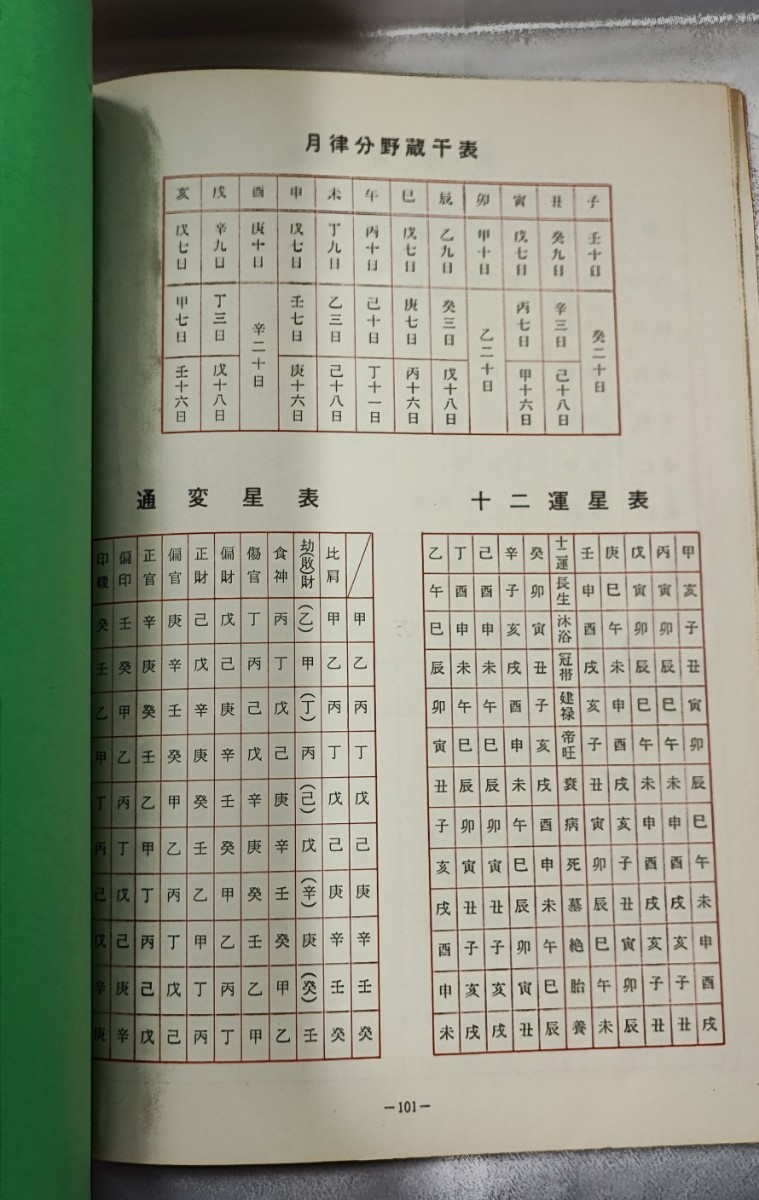 月律分野蔵干表
亥 戌 酉 申 未 午 巳 辰 卯 寅 丑 子
戊七日 辛九日 庚十日 戊七日 丁九日 丙十日 戊七日 乙九日 甲十日 戊七日 癸九日 壬十日
甲七日 丁三日 辛二十日 壬七日 乙三日 己十日 庚七日 癸三日 乙二十日 丙七日 辛三日 癸二十日
壬十六日 戊十八日 庚十六日 己十八日 丁十一日 丙十六日 戊十八日 甲十六日 己十八日
通変星表
印綬 偏印 正官 偏官 正財 偏財 傷官 食神 劫(敗)財 比肩
癸 壬 辛 庚 己 戊 丁 丙 (乙) 甲 甲
壬 癸 庚 辛 戊 己 丙 丁 甲 乙 乙
乙 甲 癸 壬 辛 庚 己 戊 (丁) 丙 丙
甲 乙 壬 癸 庚 辛 戊 己 丙 丁 丁
丁 丙 乙 甲 癸 壬 辛 庚 (己) 戊 戊
丙 丁 甲 乙 壬 癸 庚 辛 戊 己 己
己 戊 丁 丙 乙 甲 癸 壬 (辛) 庚 庚
戊 己 丙 丁 甲 乙 壬 癸 庚 辛 辛
辛 庚 己 戊 丁 丙 乙 甲 (癸) 壬 壬
庚 辛 戊 己 丙 丁 甲 乙 壬 癸 癸
十二運星表
乙 丁 己 辛 癸 十二運 壬 庚 戊 丙 甲
午 酉 酉 子 卯 長生 申 巳 寅 寅 亥
巳 申 申 亥 寅 沐浴 酉 午 卯 卯 子
辰 未 未 戌 丑 冠帯 戌 未 辰 辰 丑
卯 午 午 酉 子 建禄 亥 申 巳 巳 寅
寅 巳 巳 申 亥 帝旺 子 酉 午 午 卯
丑 辰 辰 未 戌 衰 丑 戌 未 未 辰
子 卯 卯 午 酉 病 寅 亥 申 申 巳
亥 寅 寅 巳 申 死 卯 子 酉 酉 午
戌 丑 丑 辰 未 墓 辰 丑 戌 戌 未
酉 子 子 卯 午 絶 巳 寅 亥 亥 申
申 亥 亥 寅 巳 胎 午 卯 子 子 酉
未 戌 戌 丑 辰 養 未 辰 丑 丑 戌
—101—